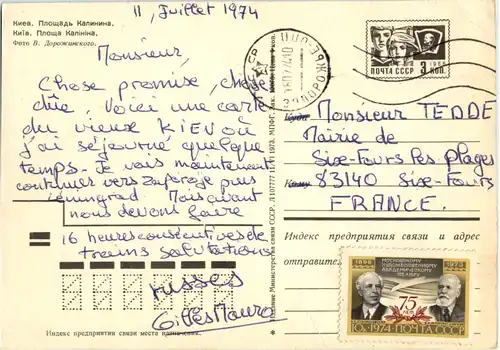 11, Juillet 1974
Киев. Площадь Калинина.
Київ. Площа Калініна.
Фото В. Дорожинского.
Monsieur,
Chose promise, chose
dûe, Voici une carte
du vieux KIEV où
j'ai séjourné quelque
temps. Je vais maintenant
continuer vers Zaporoje puis
Léningrad. Mais avant
nous devons faire
16 heures consécutives de
train. Salutations
russes
Gilles Mauro
ПОЧТА СССР
3 КОП.
1966
Monsieur TEDDE
Mairie de
Six-Fours les plages
83140 Six-Fours
FRANCE.
Куда
Кому
Индекс предприятия связи и адрес
отправителя
Индекс предприятия связи места назначения
Издание Министерства связи СССР.
1898
1974
МОСКОВСКОМУ
ХУДОЖЕСТВЕННОМУ
АКАДЕМИЧЕСКОМУ
ТЕАТРУ
75
ЛЕТ
10к 1974 ПОЧТА СССР